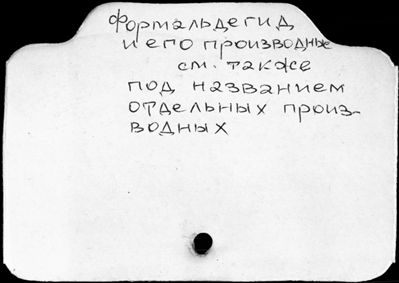 формальдегид
и его производные
см. также
под названием
отдельных произ-
водных